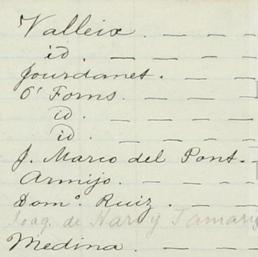 Valleix. — — —
id. — — —
Jourdanet. — — —
O'Forns. — — —
id. — — —
id. — — —
J. Marco del Pont.
Armijo. — — —
Domº. Ruiz. — — —
Joaq. de Haro y Tamariz
Medina. — — —